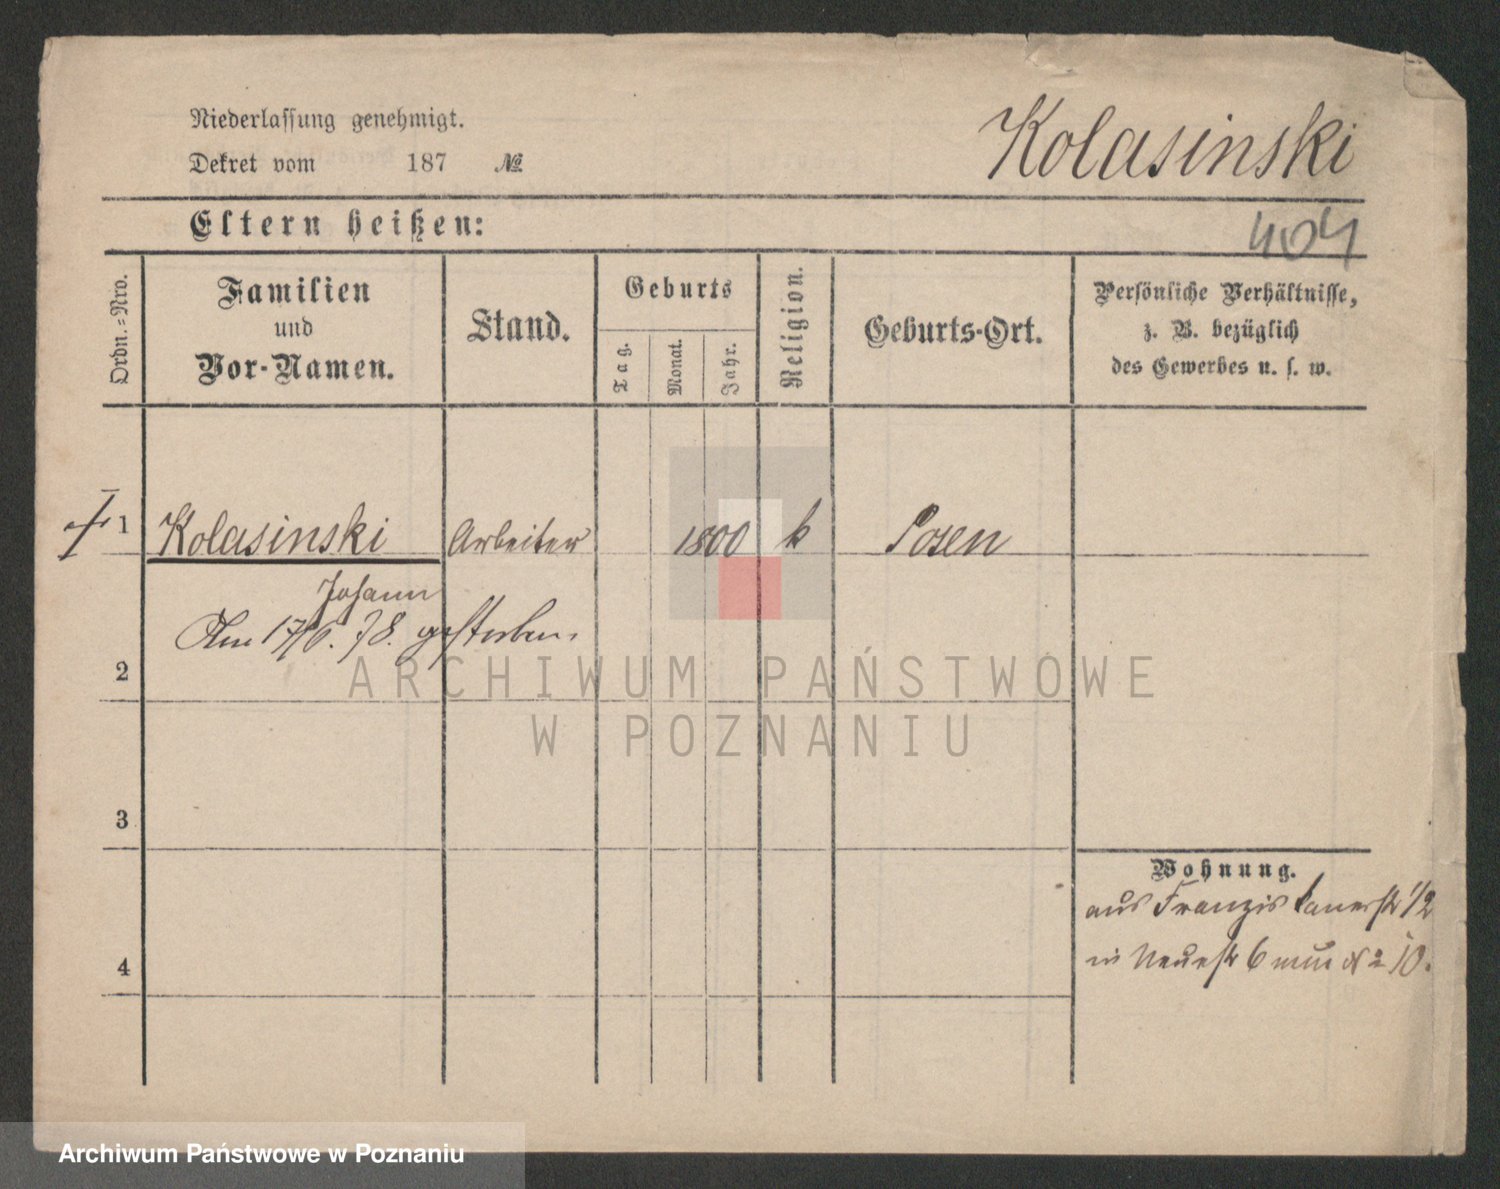 Niederlassung genehmigt.
Dekret vom 187 №
Kolasinski
Eltern heißen:
404
Ordn.-Nro.
Familien
und
Vor-Namen.
Stand.
Geburts
Tag.
Monat.
Jahr.
Religion.
Geburts-Ort.
Persönliche Verhältnisse,
z. B. bezüglich
des Gewerbes u. s. w.
1 Kolasinski Arbeiter 1800 k Posen
Johann
Am 17/6. 78. gestorben.
2
ARCHIWUM PAŃSTWOWE
W POZNANIU
3
Wohnung.
aus Franziskanerstr 1/2
4
in Neuestr 6 10.
Archiwum Państwowe w Poznaniu